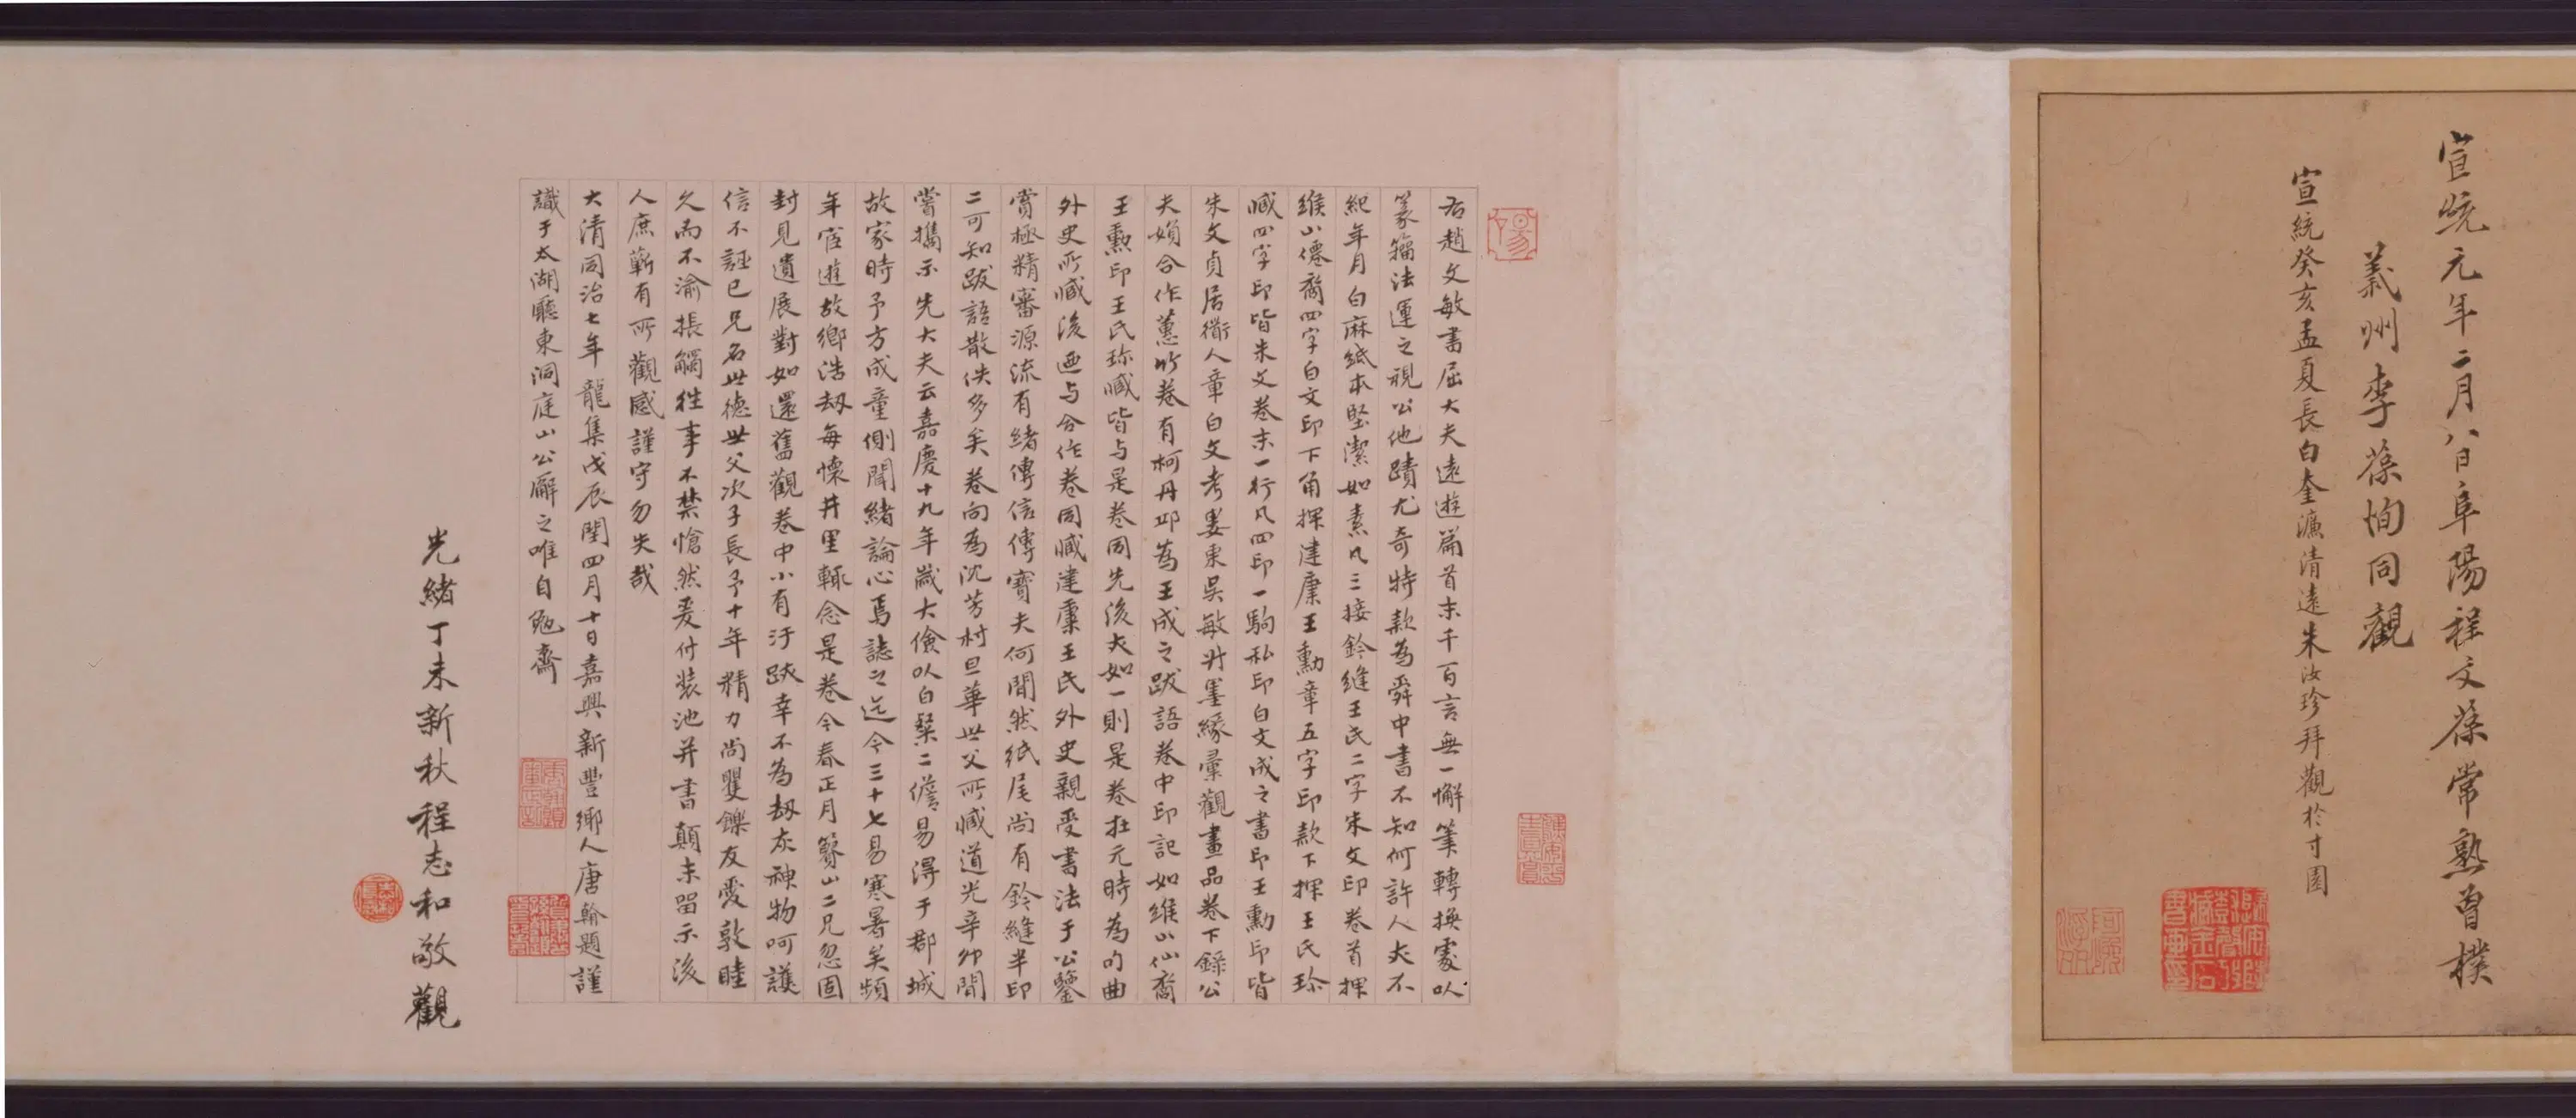 宣統元年二月八日阜陽程文葆常熟曾樸
義州李葆恂同觀
宣統癸亥孟夏長白奎濂清遠朱汝珍拜觀於寸園
右趙文敏書屈大夫遠遊篇首末千百言無一懈筆轉換處以
篆籀法運之視公他蹟尤奇特款為舜中書不知何許人夫不
紀年月白麻紙本堅潔如素凡三接鈐縫王氏二字朱文印卷首押
維山僊裔四字白文印下角押建康王勳章五字印款下押王氏珍
臧四字印皆朱文卷末一行凡四印一騊私印白文成之書印王勳印皆
朱文貞居衜人章白文考婁東吳敏尗墨緣彙觀畫品卷下錄公
夫婦合作蕙竹卷有柯丹邱為王成之跋語卷中印記如維山仙裔
王勳印王氏珍臧皆与是卷同先後夫如一則是卷在元時為句曲
外史所臧後画与合作卷同臧建康王氏外史親受書法于公鑒
賞極精審源流有緒傳信傳寶夫何間然紙尾尚有鈐縫半印
二可知跋語散佚多矣卷向為沈芳村旦華世父所臧道光辛卯間
嘗攜示先大夫云嘉慶十九年歲大儉以白粲二儋易得于郡城
故家時予方成童側聞緒論心焉誌之迄今三十七易寒暑矣頻
年宦遊故鄉浩劫每懷井里輒念是卷今春正月簪山二兄忽固
封見遺展對如還舊觀卷中小有汙跌幸不為劫灰神物呵護
信不誣已兄名世德世父次子長予十年精力尚矍鑠友愛敦睦
久而不渝振觸往事不禁愴然爰付裝池并書顛末留示後
人庶蘄有所觀感謹守勿失哉
大清同治七年龍集戊辰閏四月十日嘉興新豐鄉人唐翰題謹
識于太湖廳東洞庭山公廨之唯自勉齋
光緒丁未新秋程志和敬觀